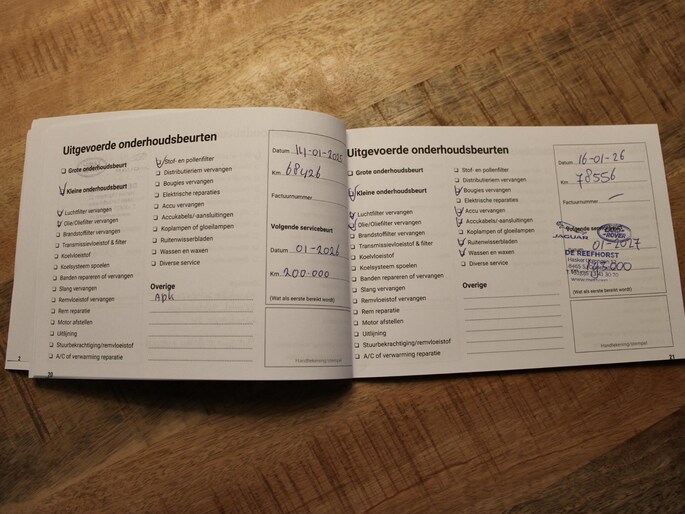 Uitgevoerde onderhoudsbeurten
Grote onderhoudsbeurt
Kleine onderhoudsbeurt
Luchtfilter vervangen
Olie/Oliefilter vervangen
Brandstoffilter vervangen
Transmissievloeistof & filter
Koelvloeistof
Koelsysteem spoelen
Banden repareren of vervangen
Slang vervangen
Remvloeistof vervangen
Rem reparatie
Motor afstellen
Uitlijning
Stuurbekrachtiging/remvloeistof
A/C of verwarming reparatie
Stof- en pollenfilter
Distributieriem vervangen
Bougies vervangen
Elektrische reparaties
Accu vervangen
Accukabels/-aansluitingen
Koplampen of gloeilampen
Ruitenwisserbladen
Wassen en waxen
Diverse service
Overige
APK
Datum 14-01-2025
Km 68426
Factuurnummer
Volgende servicebeurt
Datum 01-2026
Km 200.000
(Wat als eerste bereikt wordt)
Handtekening/stempel
2
20
Uitgevoerde onderhoudsbeurten
Grote onderhoudsbeurt
Kleine onderhoudsbeurt
Luchtfilter vervangen
Olie/Oliefilter vervangen
Brandstoffilter vervangen
Transmissievloeistof & filter
Koelvloeistof
Koelsysteem spoelen
Banden repareren of vervangen
Slang vervangen
Remvloeistof vervangen
Rem reparatie
Motor afstellen
Uitlijning
Stuurbekrachtiging/remvloeistof
A/C of verwarming reparatie
Stof- en pollenfilter
Distributieriem vervangen
Bougies vervangen
Elektrische reparaties
Accu vervangen
Accukabels/-aansluitingen
Koplampen of gloeilampen
Ruitenwisserbladen
Wassen en waxen
Diverse service
Overige
Datum 16-01-26
Km 78556
Factuurnummer
Volgende
JAGUAR
ROVER
01-2027
DE REEFHORST
(Wat als eerste bereikt wordt)
Handtekening/stempel
21